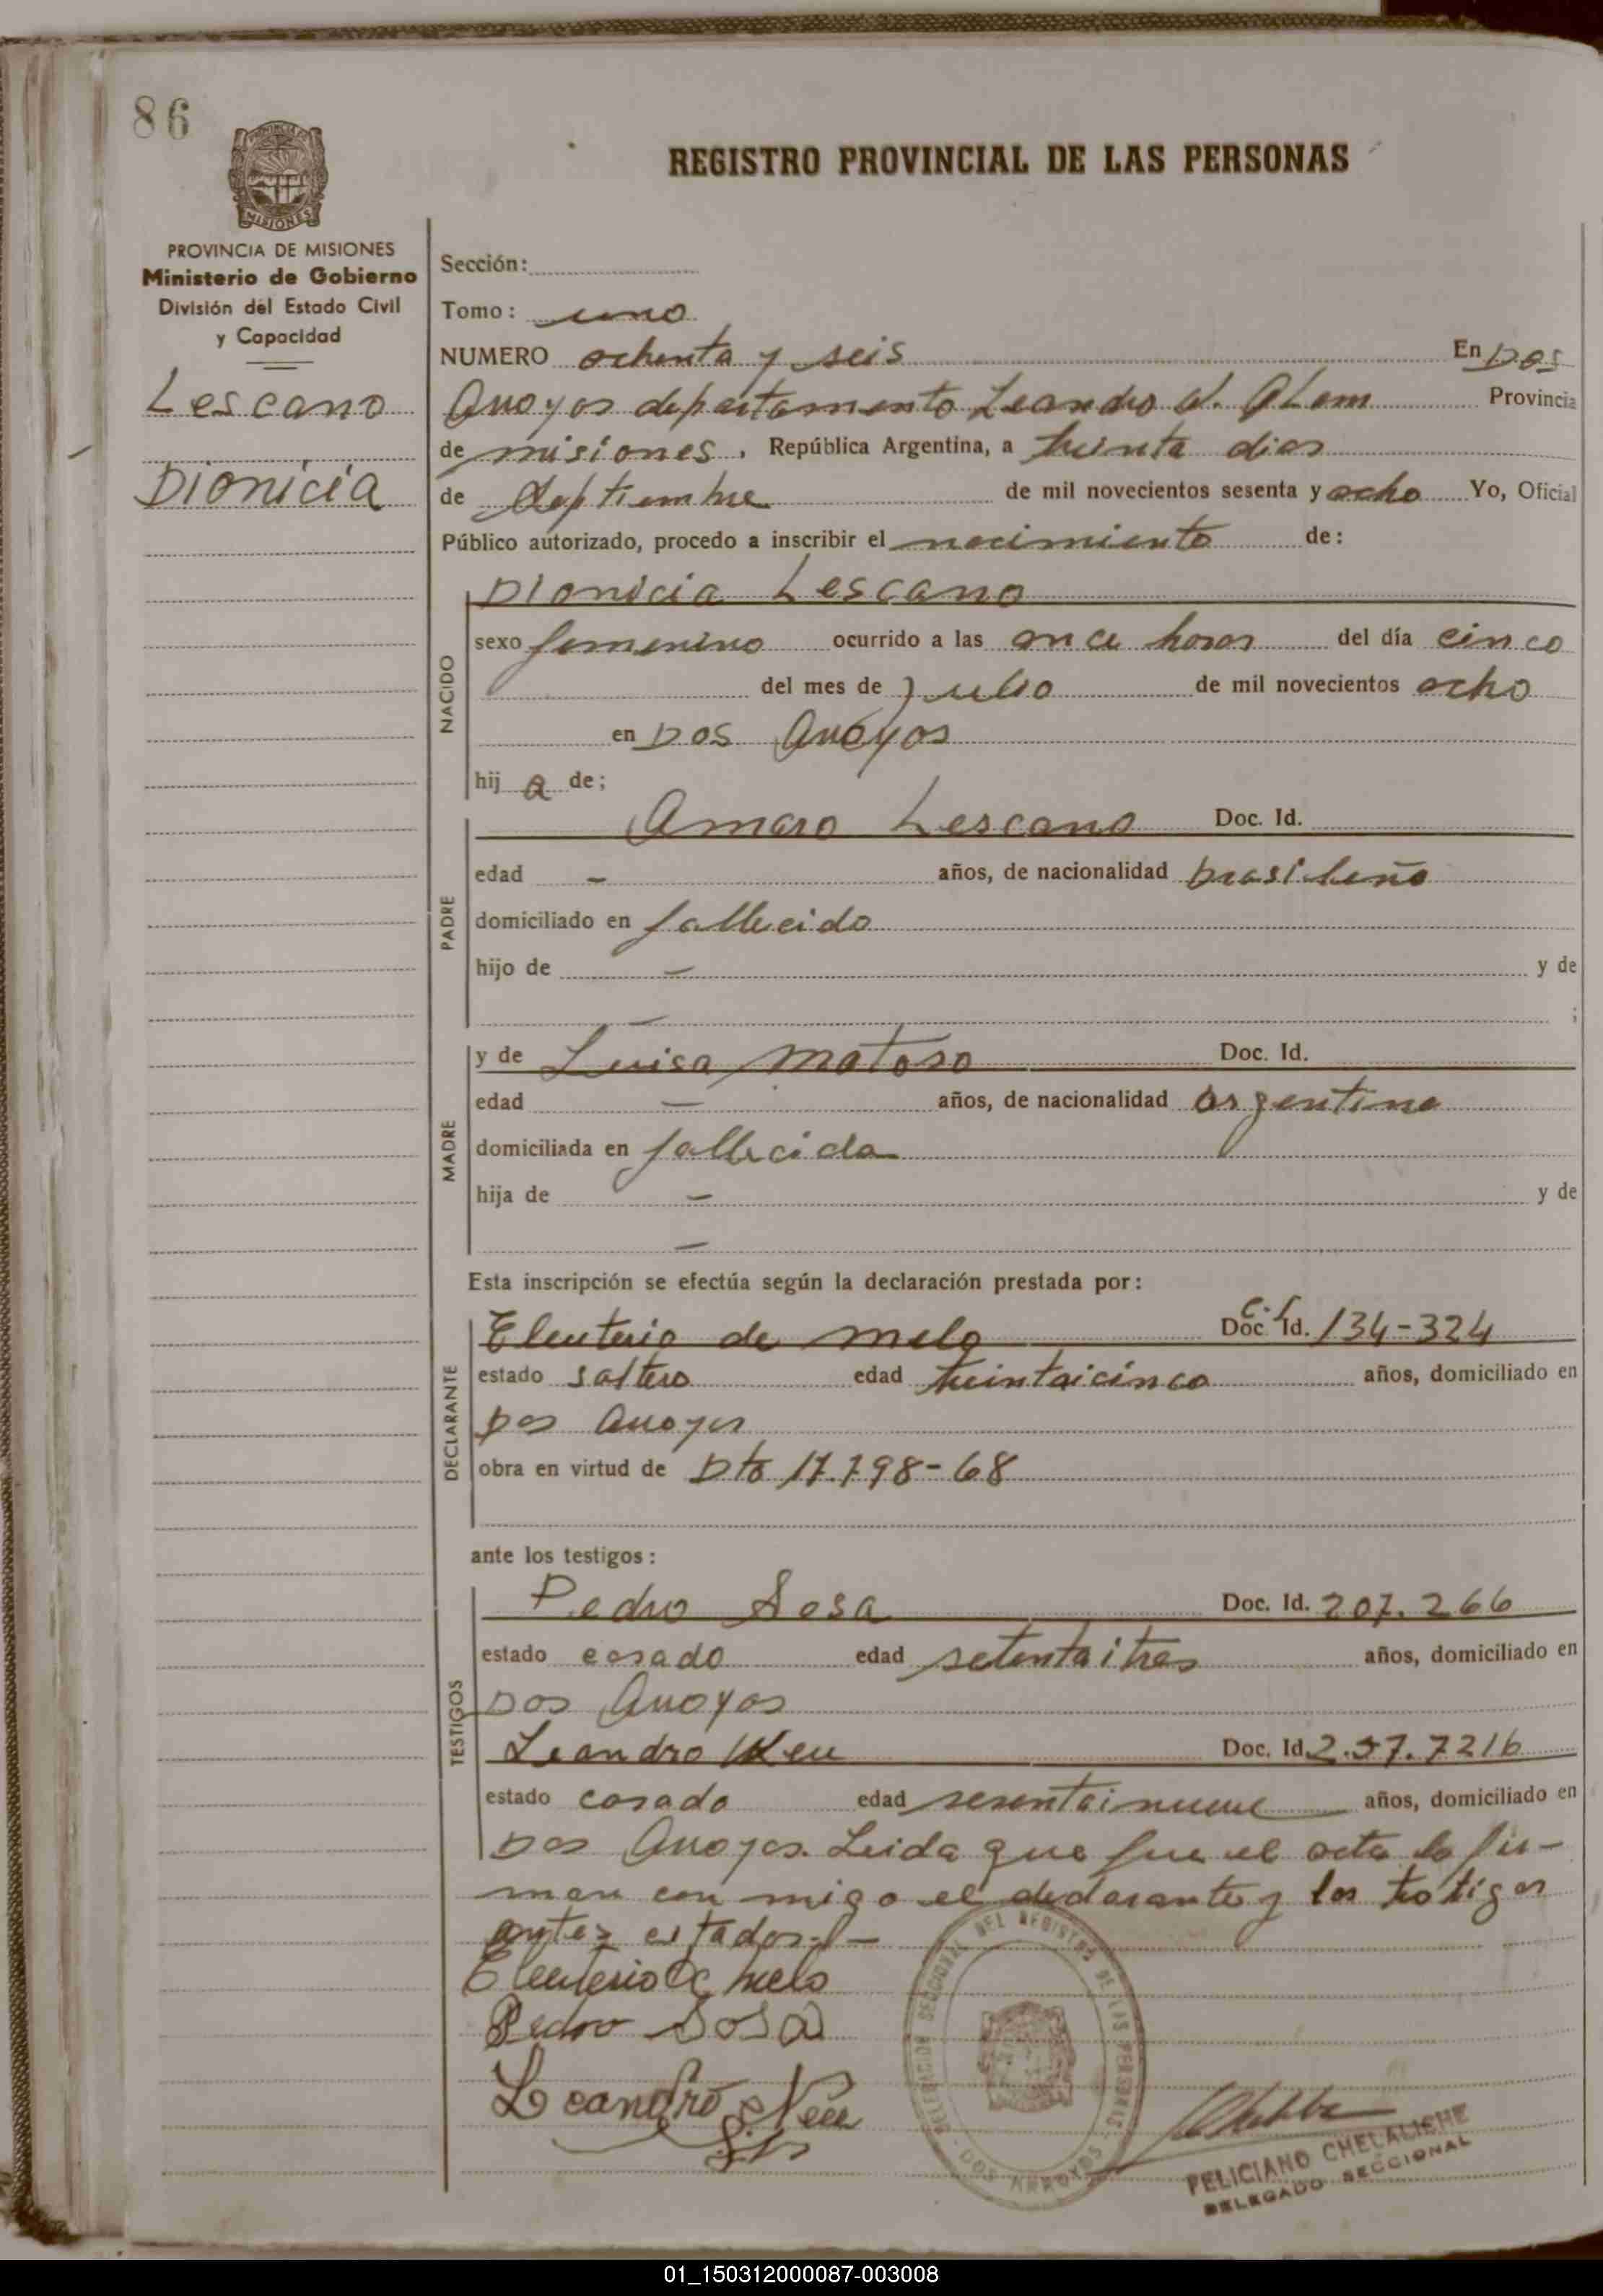 86
PROVINCIA DE MISIONES
Ministerio de Gobierno
División del Estado Civil
y Capacidad
Lescano
Dionicia
REGISTRO PROVINCIAL DE LAS PERSONAS
Sección:
Tomo: uno
NUMERO ochenta y seis En Dos
Arroyos departamento Leandro N. Alem Provincia
de misiones, República Argentina, a treinta dias
de septiembre de mil novecientos sesenta y ocho Yo, Oficial
Público autorizado, procedo a inscribir el nacimiento de:
NACIDO
Dionicia Lescano
sexo femenino ocurrido a las once horas del día cinco
del mes de julio de mil novecientos ocho
en Dos Arroyos
hij a de;
PADRE
Amaro Lescano Doc. Id.
edad - años, de nacionalidad brasileño
domiciliado en fallecido
hijo de - y de
- ;
MADRE
y de Luisa Matoso Doc. Id.
edad - años, de nacionalidad argentina
domiciliada en fallecida
hija de - y de
-
Esta inscripción se efectúa según la declaración prestada por:
DECLARANTE
Eleuterio de Melo C.I. Doc. Id. 134-324
estado soltero edad treintaicinco años, domiciliado en
Dos Arroyos
obra en virtud de Dto 17.798-68
ante los testigos:
TESTIGOS
Pedro Sosa Doc. Id. 207.266
estado casado edad setentaitres años, domiciliado en
Dos Arroyos
Leandro Neu Doc. Id. 2.57.7216
estado casado edad sesentainueve años, domiciliado en
Dos Arroyos. Leida que fue el acta la fir-
man con migo el declarante y los testigos
antes citados.-
Eleuterio de Melo
Pedro Sosa
Leandro Neu
DELEGACION SECCIONAL DEL REGISTRO DE LAS PERSONAS
DOS ARROYOS
FELICIANO CHELALICHE
DELEGADO SECCIONAL
01_150312000087-003008